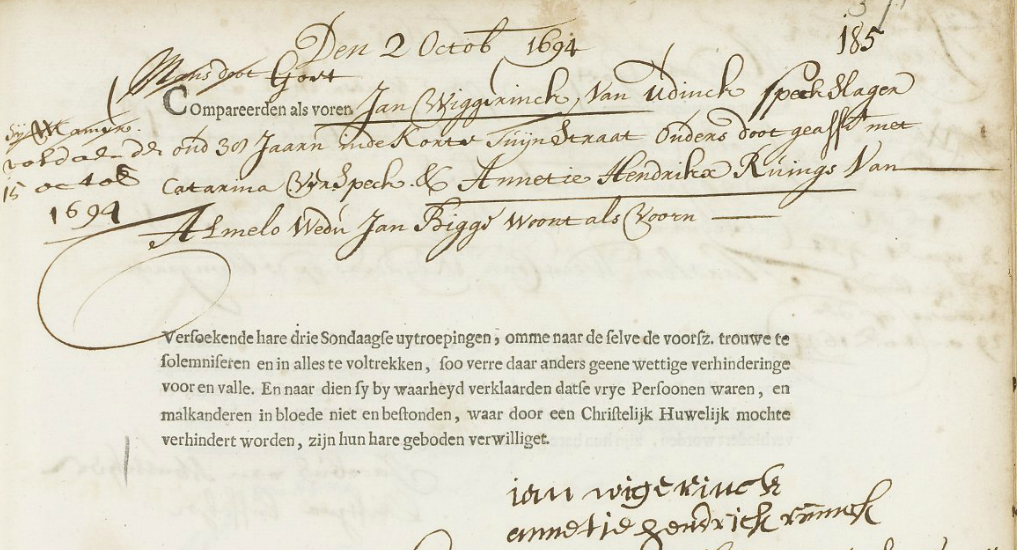 Den 2 Octob 1694
185
Mans doot Gort
Compareerden als voren Jan Wiggerinck, Van Udinck spechslager
oud 30 Jaarn inde Korte Tuijnstraat Ouders doot geasst met
Catarina Wijnspech & Annetie Hendrikx Ruings Van
Almelo Wedu Jan Biggs woont als Voorn
15 octob
1694
Versoekende hare drie Sondaagse uytroepingen, omme naar de selve de voorsz. trouwe te
solemniseren en in alles te voltrekken, soo verre daar anders geene wettige verhinderinge
voor en valle. En naar dien sy by waarheyd verklaarden datse vrye Persoonen waren, en
malkanderen in bloede niet en bestonden, waar door een Christelijk Huwelijk mochte
verhindert worden, zijn hun hare geboden verwilliget.
ian wigerinck
annetie hendrick